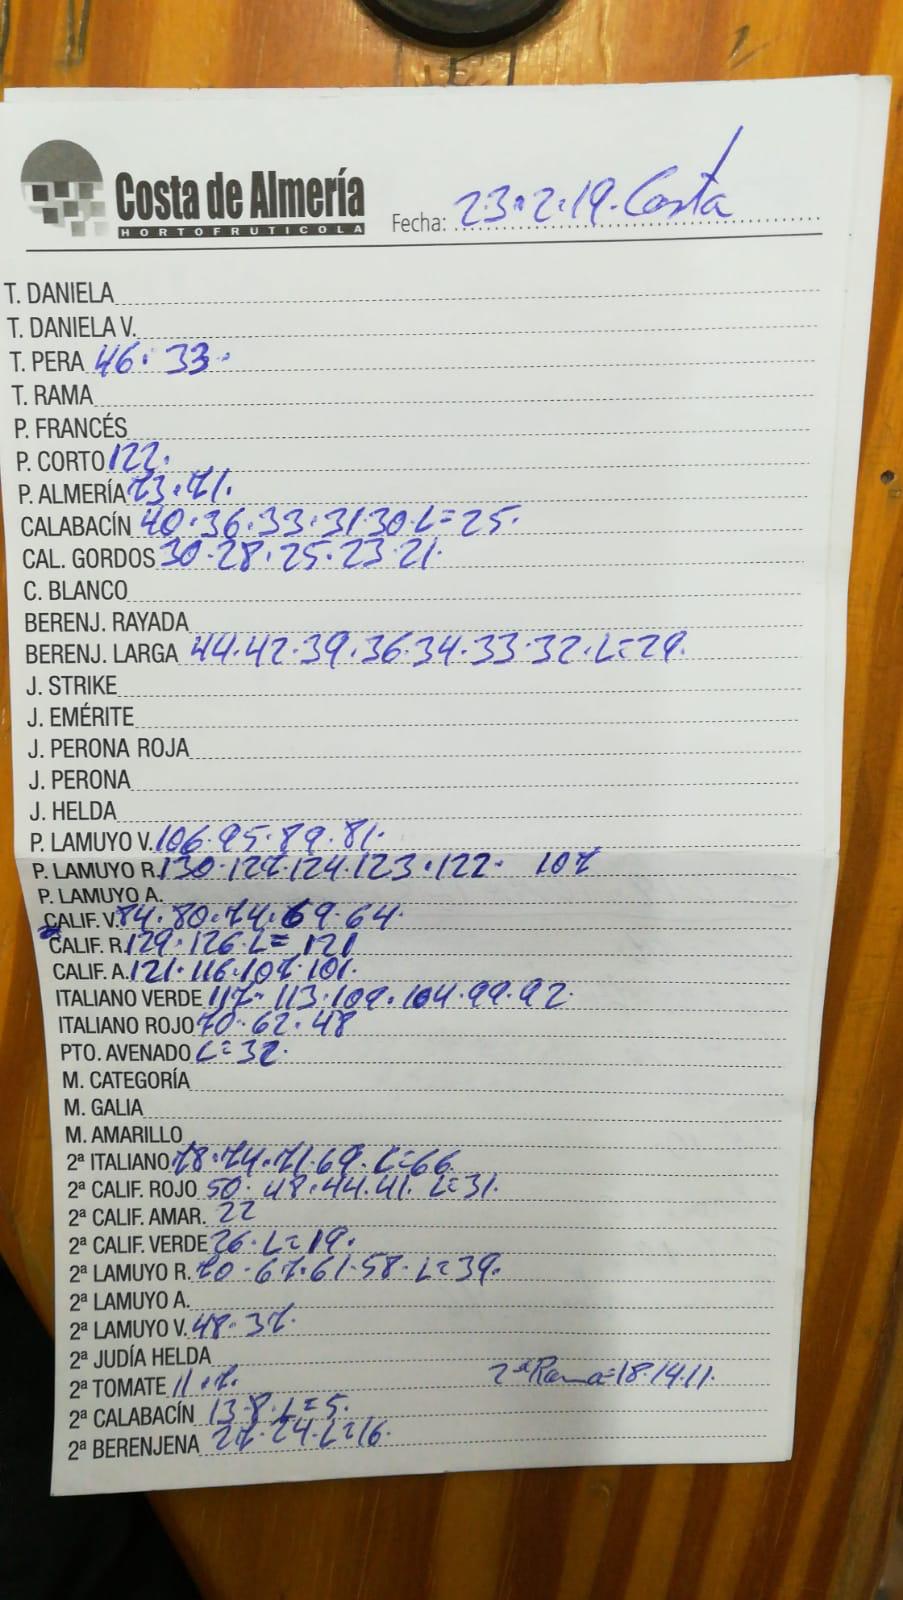 Costa de Almería
HORTOFRUTICOLA
Fecha: 23.2.19. Costa
T. DANIELA
T. DANIELA V.
T. PERA 46. 33.
T. RAMA
P. FRANCÉS
P. CORTO 122.
P. ALMERÍA 73.71.
CALABACÍN 40.36.33.31.30.L=25.
CAL. GORDOS 30.28.25.23.21.
C. BLANCO
BERENJ. RAYADA
BERENJ. LARGA 44.42.39.36.34.33.32.L=29.
J. STRIKE
J. EMÉRITE
J. PERONA ROJA
J. PERONA
J. HELDA
P. LAMUYO V. 106.95.89.81.
P. LAMUYO R. 130.127.124.123.122. 107
P. LAMUYO A.
CALIF. V. 84.80.74.69.64.
CALIF. R. 129.126.L=121
CALIF. A. 121.116.107.101.
ITALIANO VERDE 117.113.109.104.99.92.
ITALIANO ROJO 70.62.48
PTO. AVENADO L=32.
M. CATEGORÍA
M. GALIA
M. AMARILLO
2ª ITALIANO 78.74.71.69.L=66
2ª CALIF. ROJO 50.48.44.41.L=31.
2ª CALIF. AMAR. 22
2ª CALIF. VERDE 26.L=19.
2ª LAMUYO R. 70.67.61.58.L=39.
2ª LAMUYO A.
2ª LAMUYO V. 48.37.
2ª JUDÍA HELDA
2ª TOMATE 11.7. 2ª Rama=18.14.11.
2ª CALABACÍN 13.8.L=5.
2ª BERENJENA 27.24.L=16.